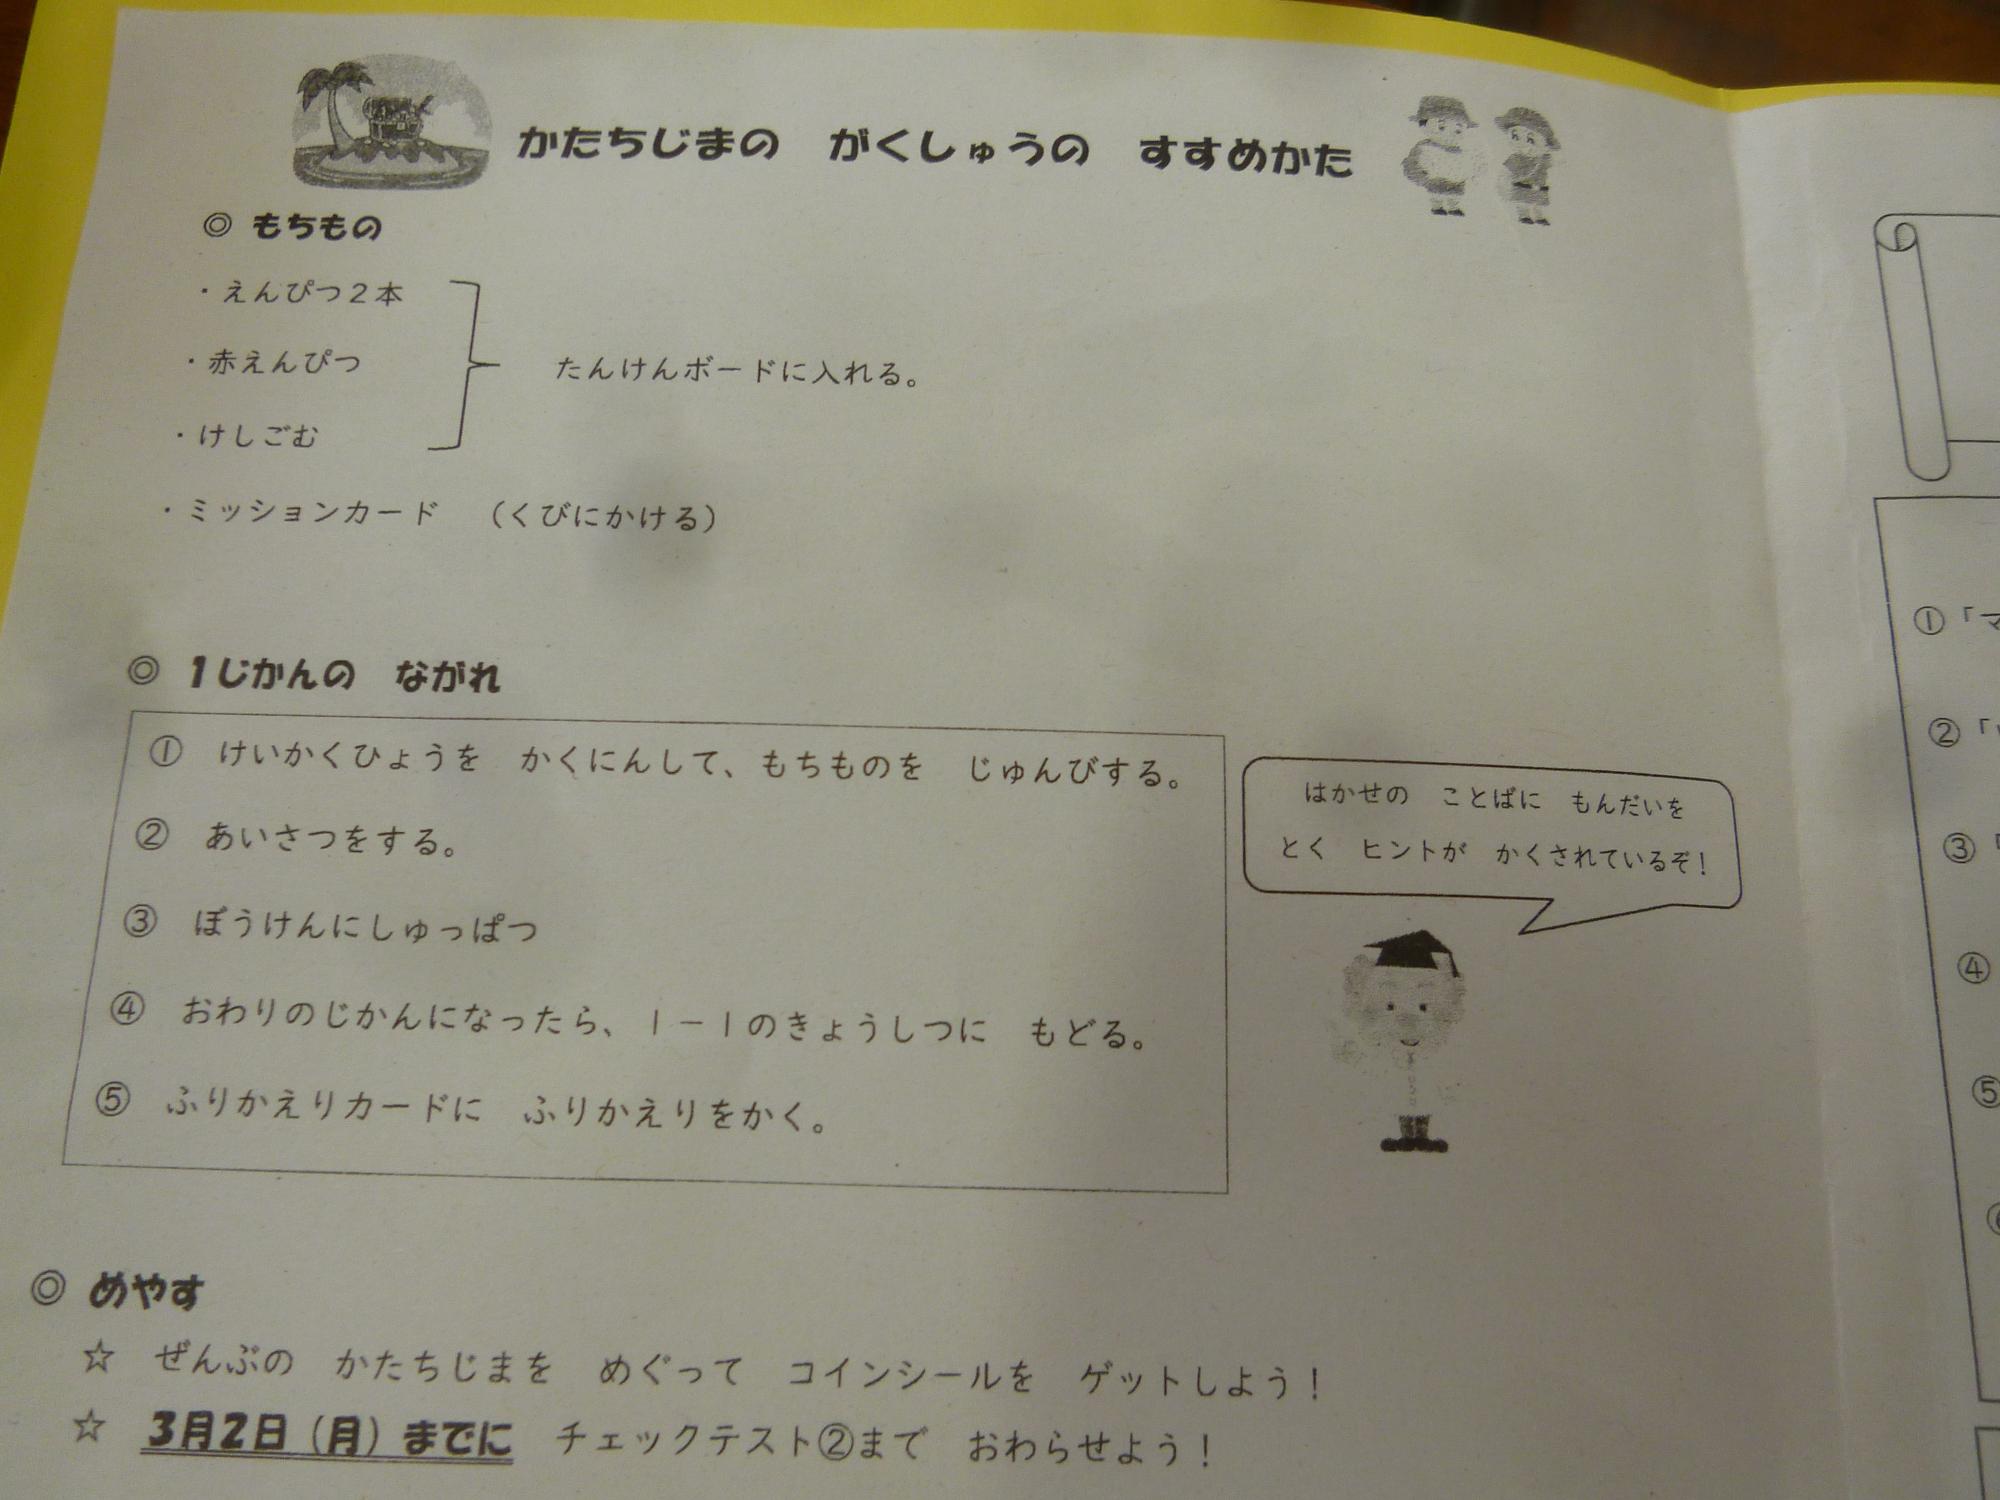 かたちじまの　がくしゅうの　すすめかた
◎ もちもの
・えんぴつ２本
・赤えんぴつ
・けしごむ
たんけんボードに入れる。
・ミッションカード　（くびにかける）
◎ 1じかんの　ながれ
①　けいかくひょうを　かくにんして、もちものを　じゅんびする。
②　あいさつをする。
③　ぼうけんにしゅっぱつ
④　おわりのじかんになったら、１－１のきょうしつに　もどる。
⑤　ふりかえりカードに　ふりかえりをかく。
はかせの　ことばに　もんだいを
とく　ヒントが　かくされているぞ！
◎ めやす
☆　ぜんぶの　かたちじまを　めぐって　コインシールを　ゲットしよう！
☆　3月2日（月）までに　チェックテスト②まで　おわらせよう！
①「マ
②「
③「
④
⑤